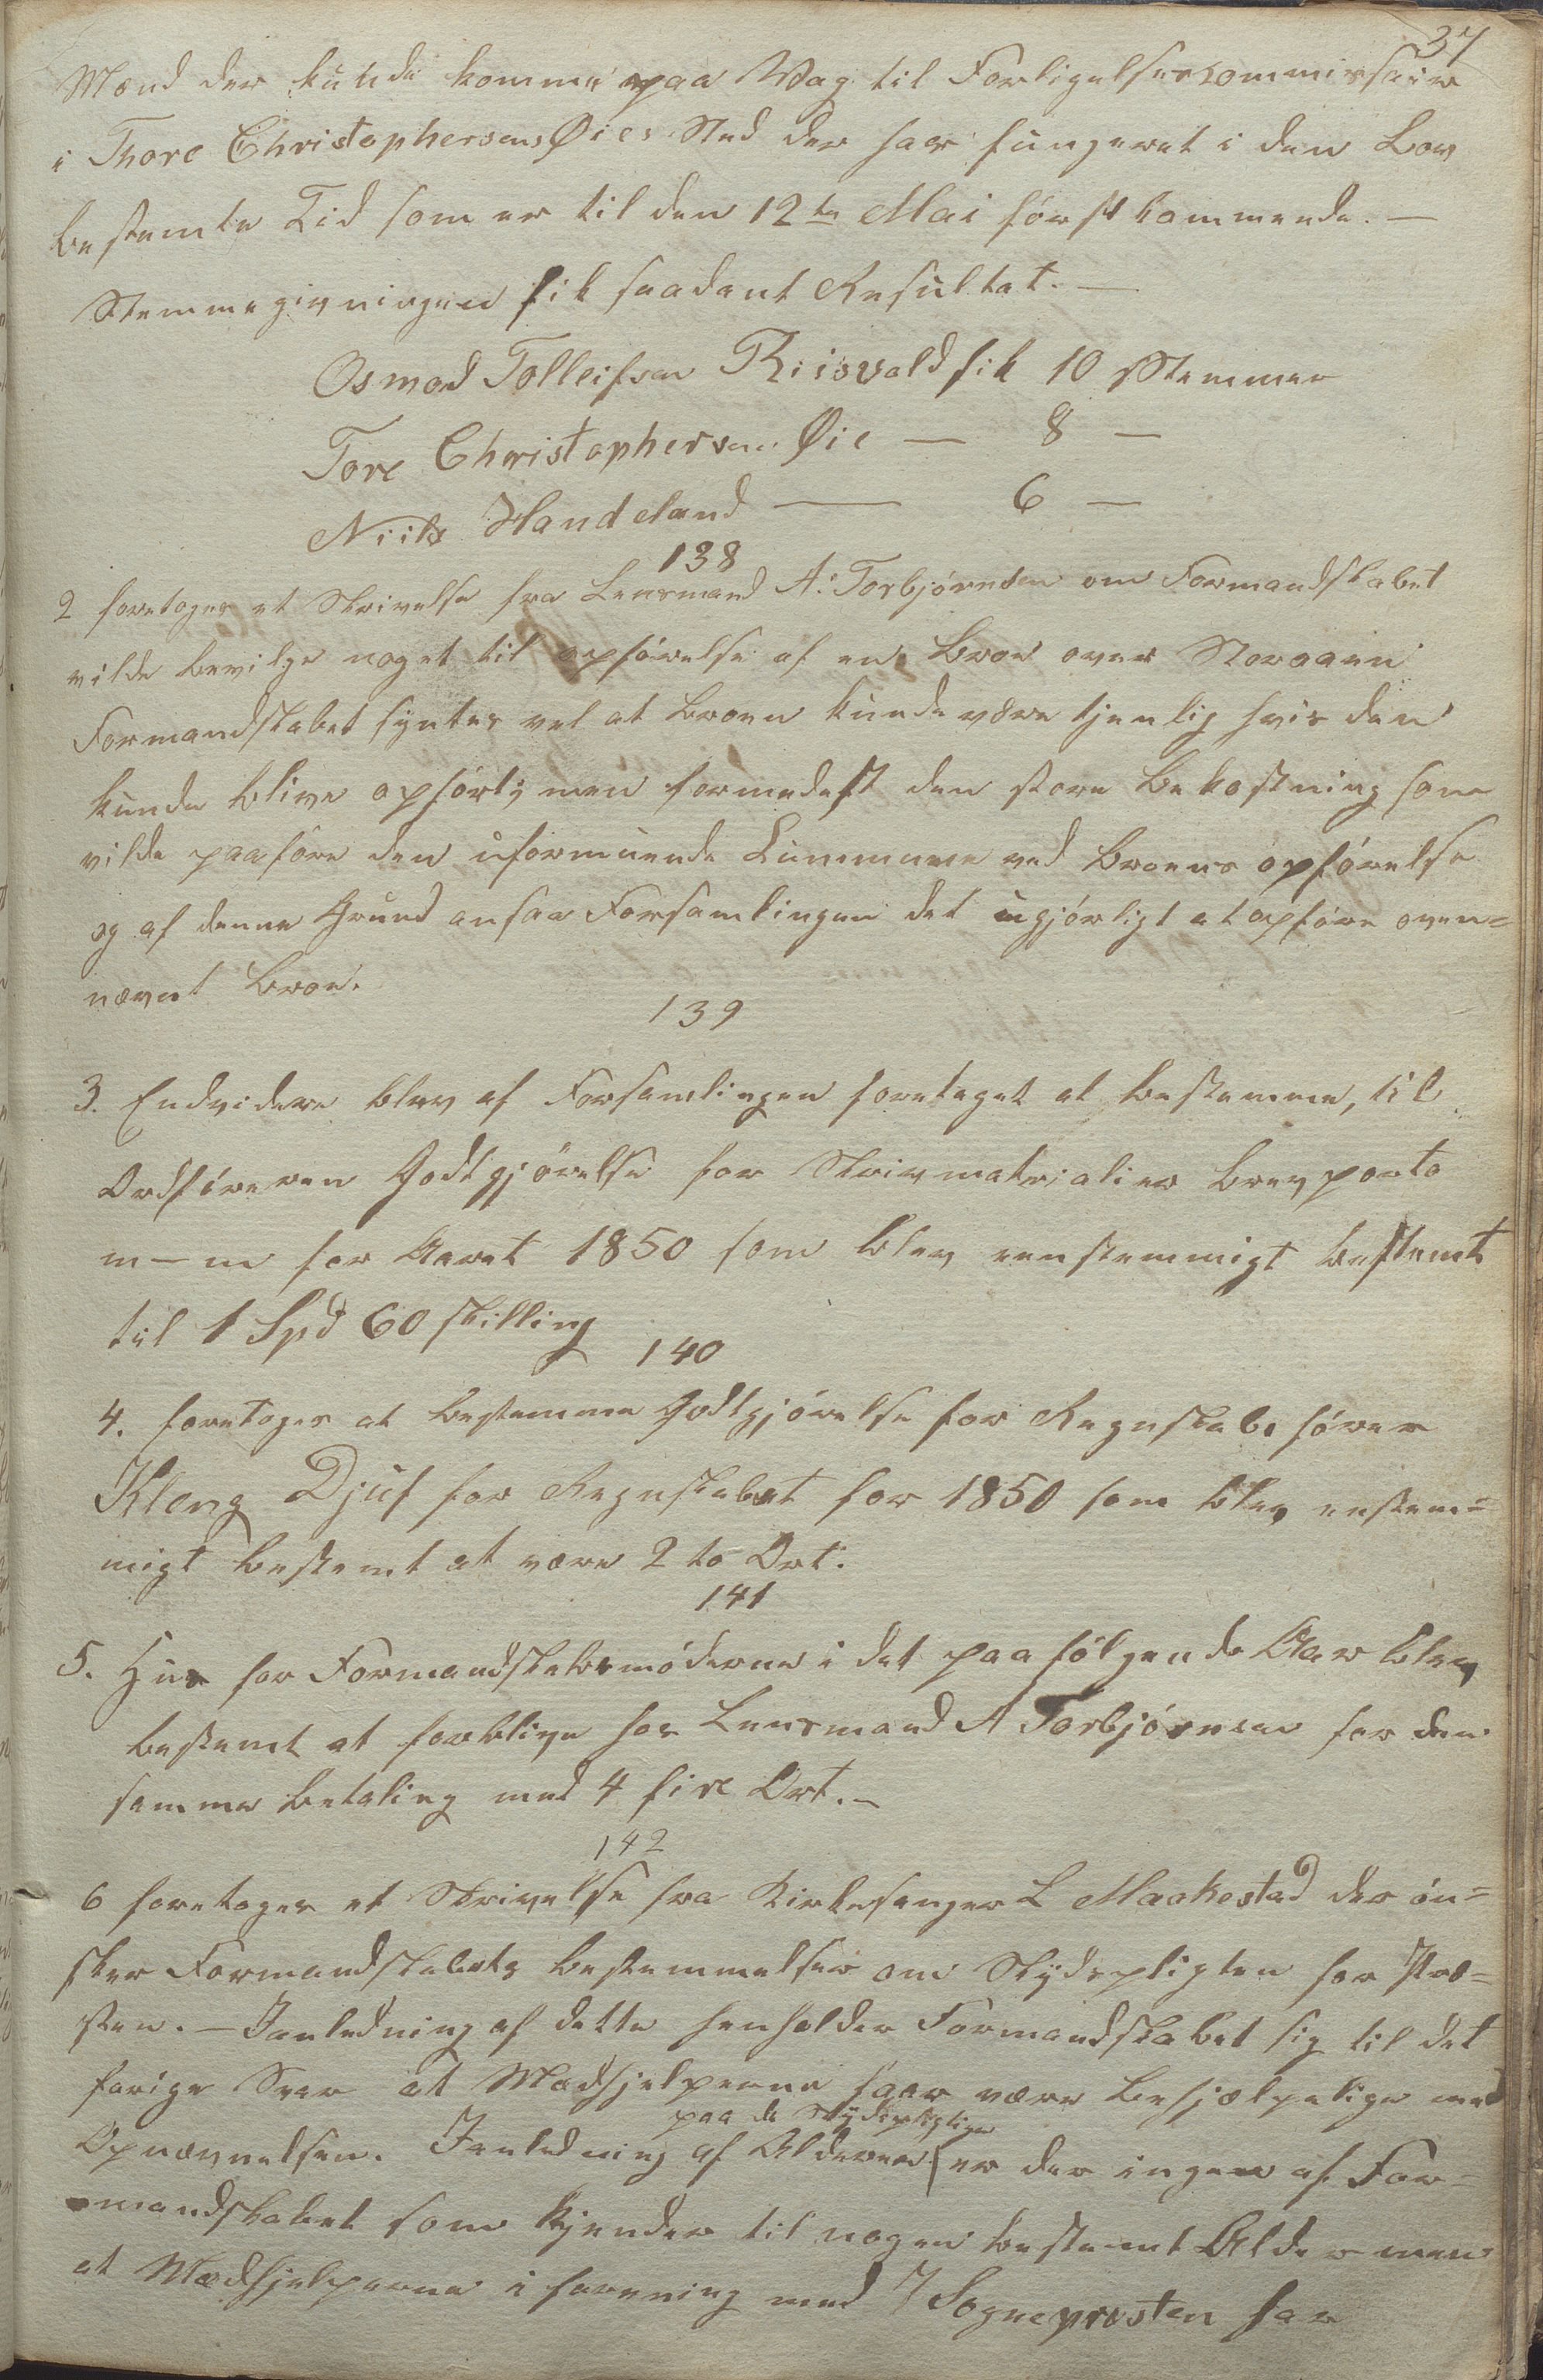 37
Mænd der kunde komme paa Vag til Forligelsescommissair
i Thore Christophersens Øies Sted der har fungeret i den Lov
bestemte Tid som er til den 12te Mai først kommende. —
Stemmegivningen fik saadant Resultat. —
Osmond Tolleifsen Risvold fik 10 Stemmer
Tore Christophersen Øie — 8 —
Niils Handeland — 6 —
138
2 foretoges et Skrivelse fra Lensmand A. Torbjørnsen om Formandskabet
vilde bevilge noget til opførelse af en Broe over Storaaen
Formandskabet syntes vel at Broen kunde være tjenlig hvis den
kunde blive opført; men formedest den store Bekostning som
vilde paaføre den uformuende Cummune ved Broens opførelse
og af denne Grund ansaa Forsamlingen det ugjørligt at opføre oven=
nævnt Broe.
139
3. Endvidere blev af Forsamlingen foretaget at bestemme, til
Ordføreren Godtgjørelse for Skrivmatrialier Brevporto
m–m for Aaret 1850 som blev eenstemmigt bestemt
til 1 Spd 60 skilling
140
4. foretoges at bestemme Godtgjørelse for Regnskabsfører
Kleng Djuf for Regnskabet for 1850 som blev enstem=
migt bestemt at være 2 to Ort.
141
5. Huus for Formandskabsmøderne i det paafølgende Aar blev
bestemt at forblive hos Lensmand A Torbjørnsen for den
samme betaling med 4 fire Ort. —
142
6 foretoges et Skrivelse fra Kirkesanger L Maokestad der øn=
sker Formandskabets bestemmelser om Skydspligten for Præ=
sten. — Ianledning af dette henholder Formandskabet sig til det
forige Svar at Medhjelperne faar være behjælpelige med
paa de Skydspligtige
Opnævnelsen. Ianledning af Alderen er der ingen af For=
mandskabet som kjender til nogen bestemt Alder men
at Medhjelperne i forening med Sognepresten har